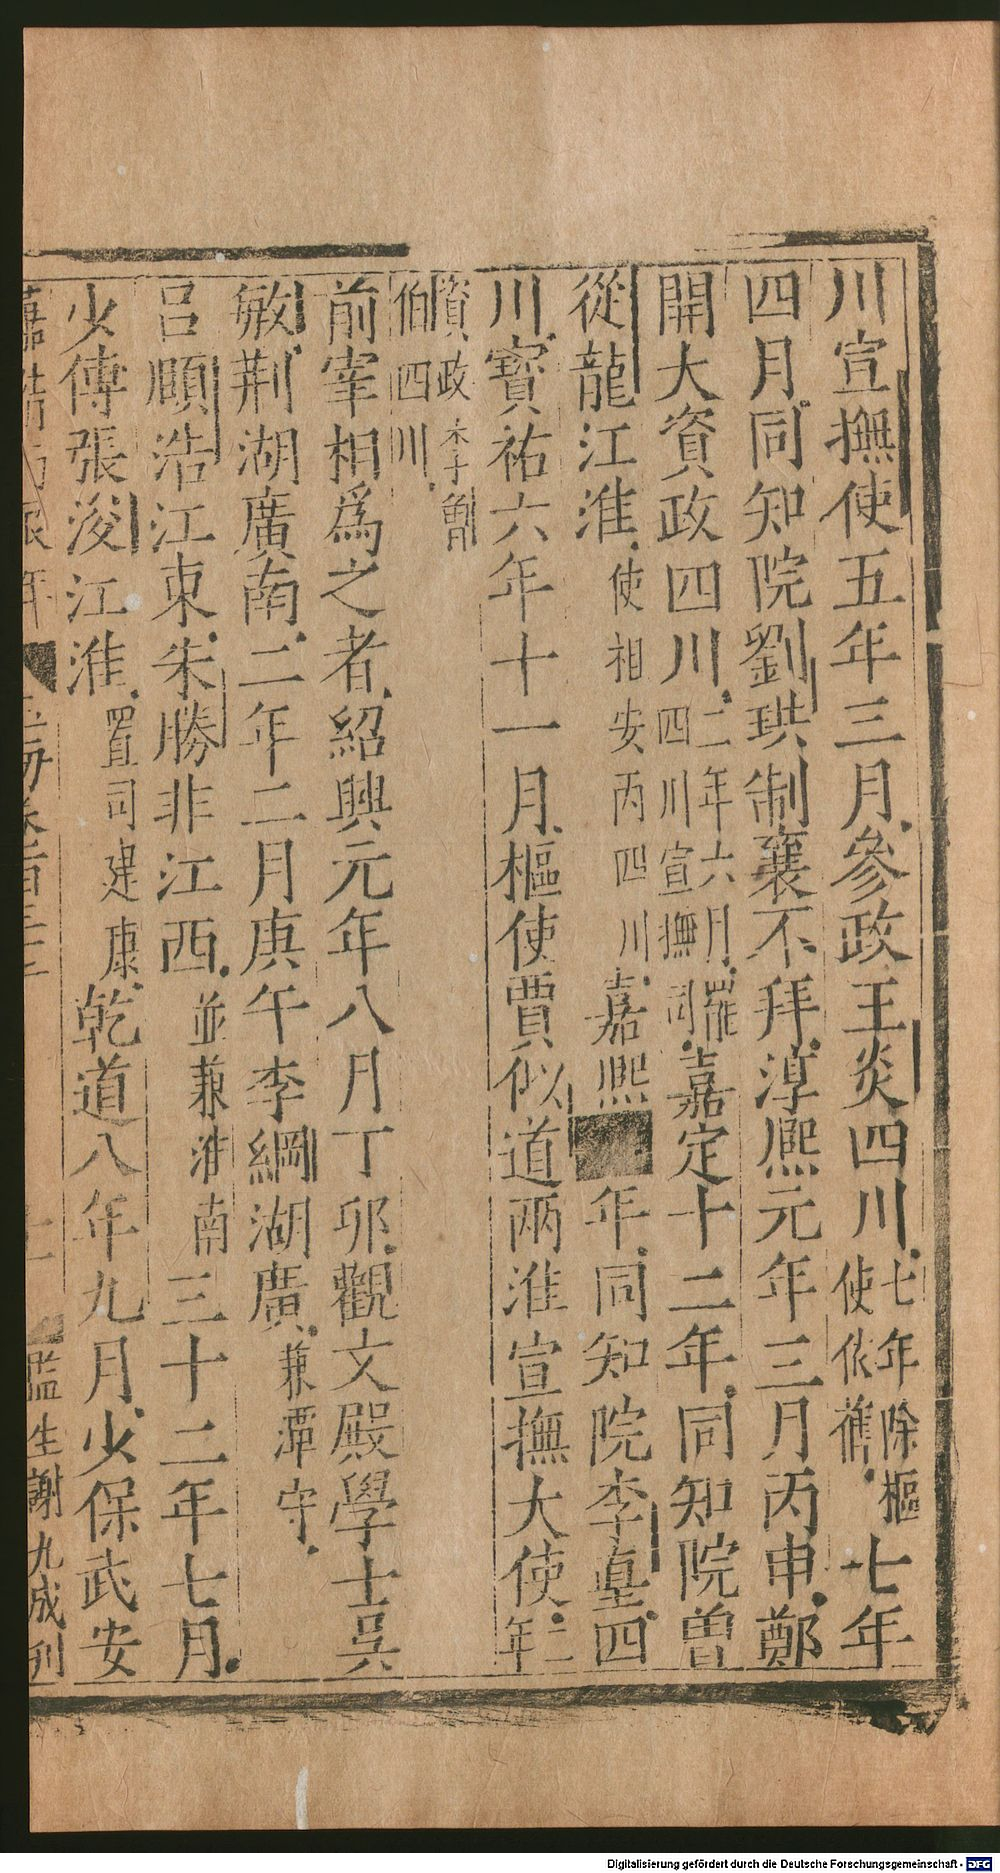 川宣撫使五年三月參政王炎四川七年除樞使依舊七年
四月同知院劉珙制襄不拜淳熈元年三月丙申鄭
開大資政四川二年六月罷四川宣撫司嘉定十二年同知院曽
從龍江淮使相安丙四川嘉熈年同知院李𡌴四
川寳祐六年十一月樞使賈似道兩淮宣撫大使二年
資政李曾伯四川
前宰相爲之者紹興元年八月丁卯觀文殿學士吕
敏荆湖廣南二年二月庚午李綱湖廣兼潭守
吕頤浩江東朱勝非江西並兼淮南三十二年七月
少傅張浚江淮置司建康乾道八年九月少保武安
嘉靖 年 玉海卷百三十 監生謝九成刊
Digitalisierung gefördert durch die Deutsche Forschungsgemeinschaft - DFG